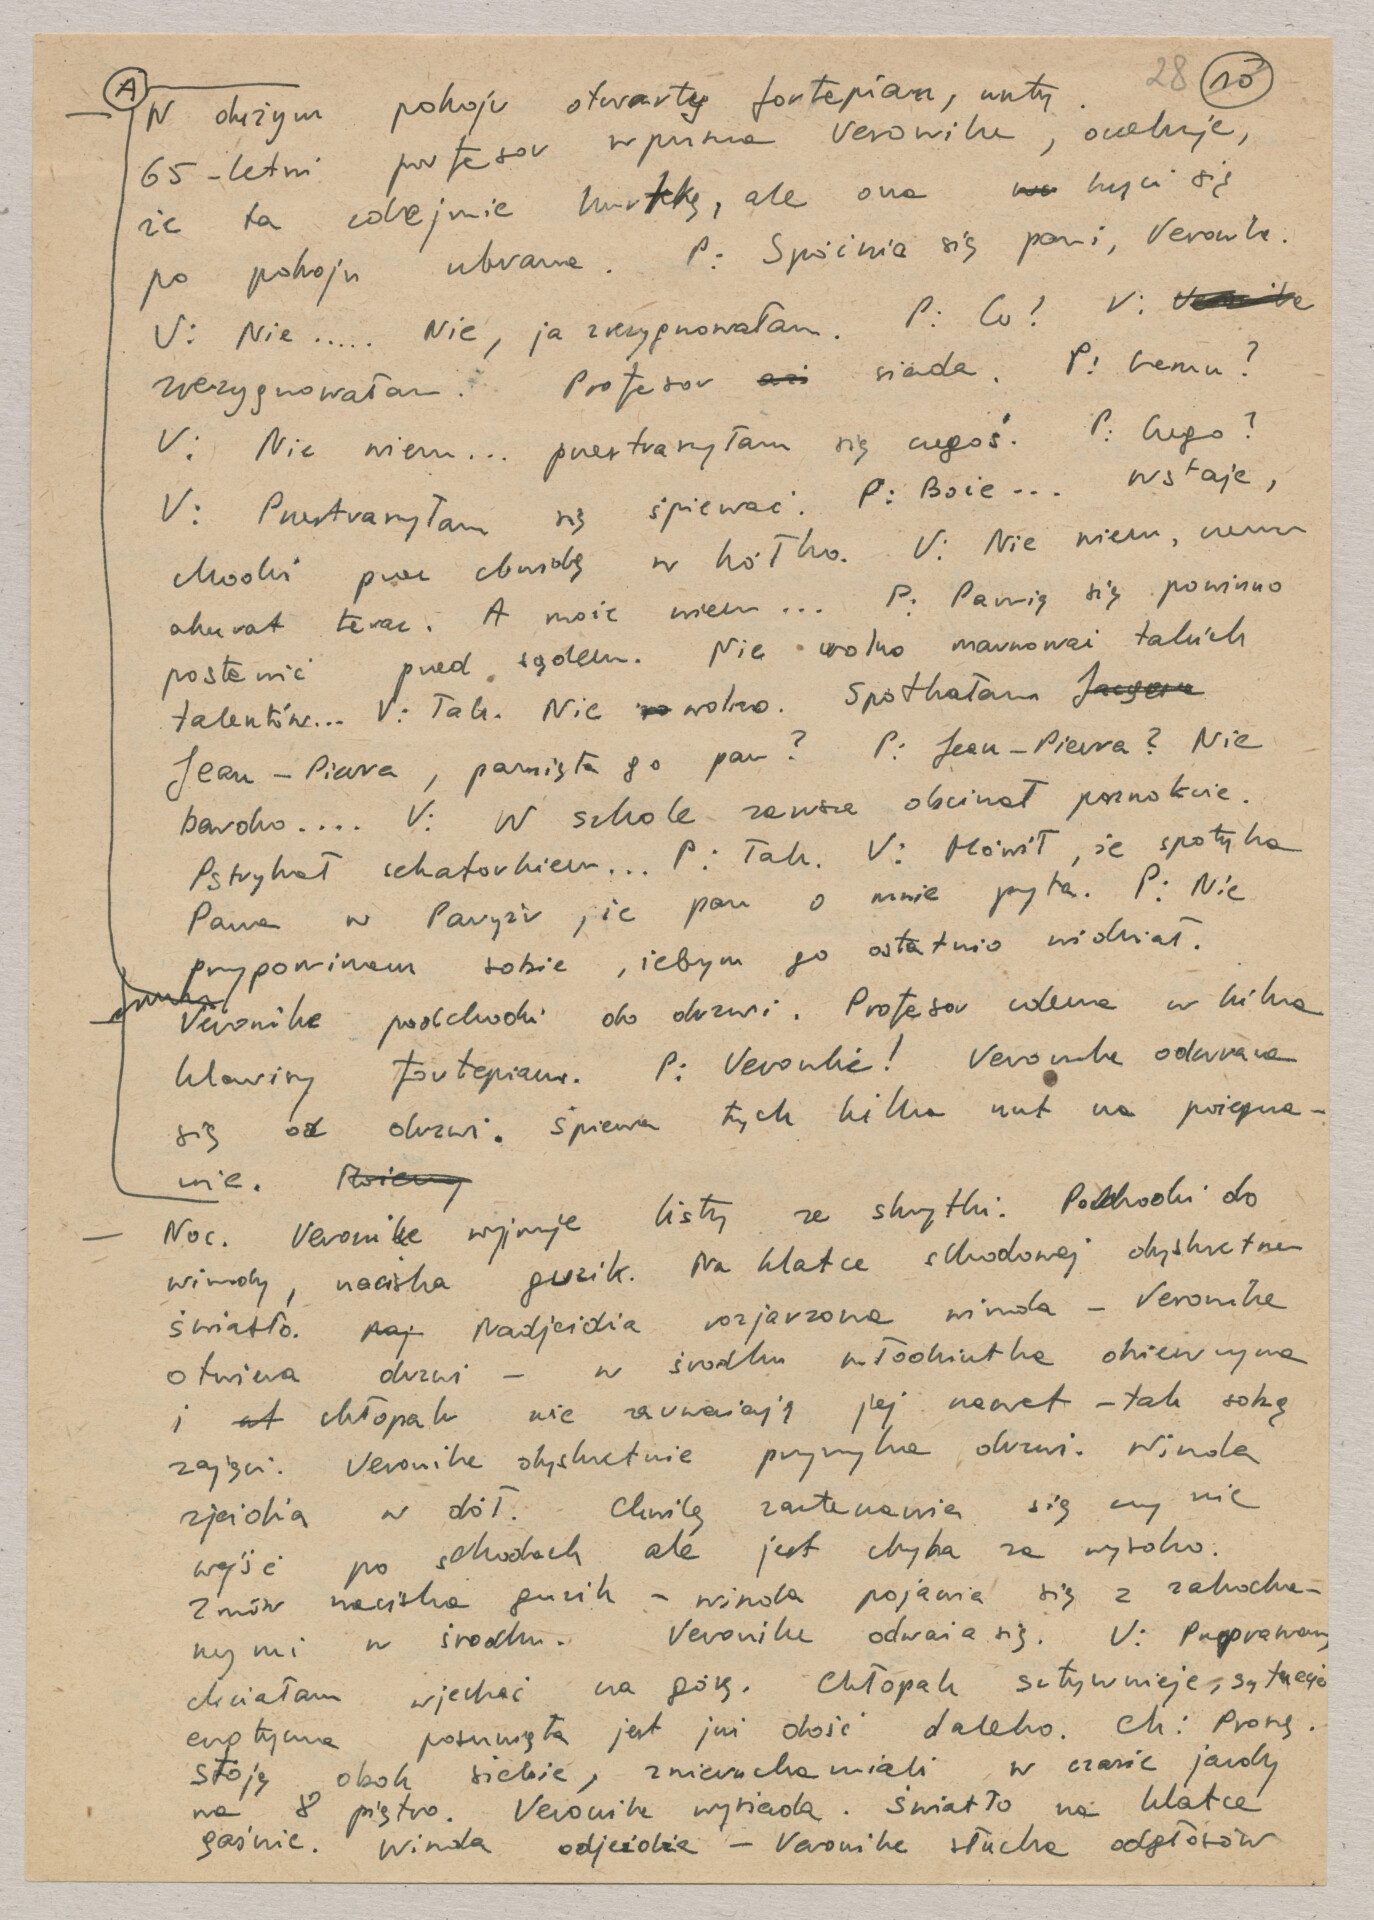 28 10
A
W dużym pokoju otwarty fortepian, nuty.
65-letni profesor wpuszcza Veronikę, oczekuje,
że ta zdejmie kurtkę, ale ona kręci się
po pokoju ubrana. P: Spóźnia się pani, Veronik.
V: Nie..... Nie, ja zrezygnowałam. P: Co? V:
zrezygnowałam. Profesor siada. P: Czemu?
V: Nie wiem... przestraszyłam się czegoś. P: Czego?
V: Przestraszyłam się śpiewać. P: Boże... wstaje,
chodzi przez chwilę w kółko. V: Nie wiem, czemu
akurat teraz. A może wiem... P: Panią się powinno
postawić przed sądem. Nie wolno marnować takich
talentów... V: Tak. Nie wolno. Spotkałam
Jean-Pierra, pamięta go pan? P: Jean-Pierra? Nie
bardzo.... V: W szkole zawsze obcinał paznokcie.
Pstrykał sekatorkiem... P: Tak. V: Mówił, że spotyka
Pana w Paryżu, że pan o mnie pyta. P: Nie
przypominam sobie, żebym go ostatnio widział.
Veronika podchodzi do drzwi. Profesor uderza w kilka
klawiszy fortepianu. P: Veronike! Veronika odwraca
się od drzwi. Śpiewa tych kilka nut na pożegna-
nie.
Noc. Veronike wyjmuje listy ze skrytki. Podchodzi do
windy, naciska guzik. Na klatce schodowej dyskretne
światło. Nadjeżdża rozjarzona winda - Veronika
otwiera drzwi - w środku młodziutka dziewczyna
i chłopak nie zauważają jej nawet - tak sobą
zajęci. Veronike dyskretnie przymyka drzwi. Winda
zjeżdża w dół. Chwilę zastanawia się czy nie
wejść po schodach ale jest chyba za wysoko.
Znów naciska guzik - winda pojawia się z zakocha-
nymi w środku. Veronike odważa się. V: Przepraszam,
chciałam wjechać na górę. Chłopak sztywnieje, sytuacja
erotyczna posunięta jest już dość daleko. Ch: Proszę.
Stoją obok siebie, znieruchomiali w czasie jazdy
na 8 piętro. Veronika wysiada. Światło na klatce
gaśnie. Winda odjeżdża - Veronike słucha odgłosów